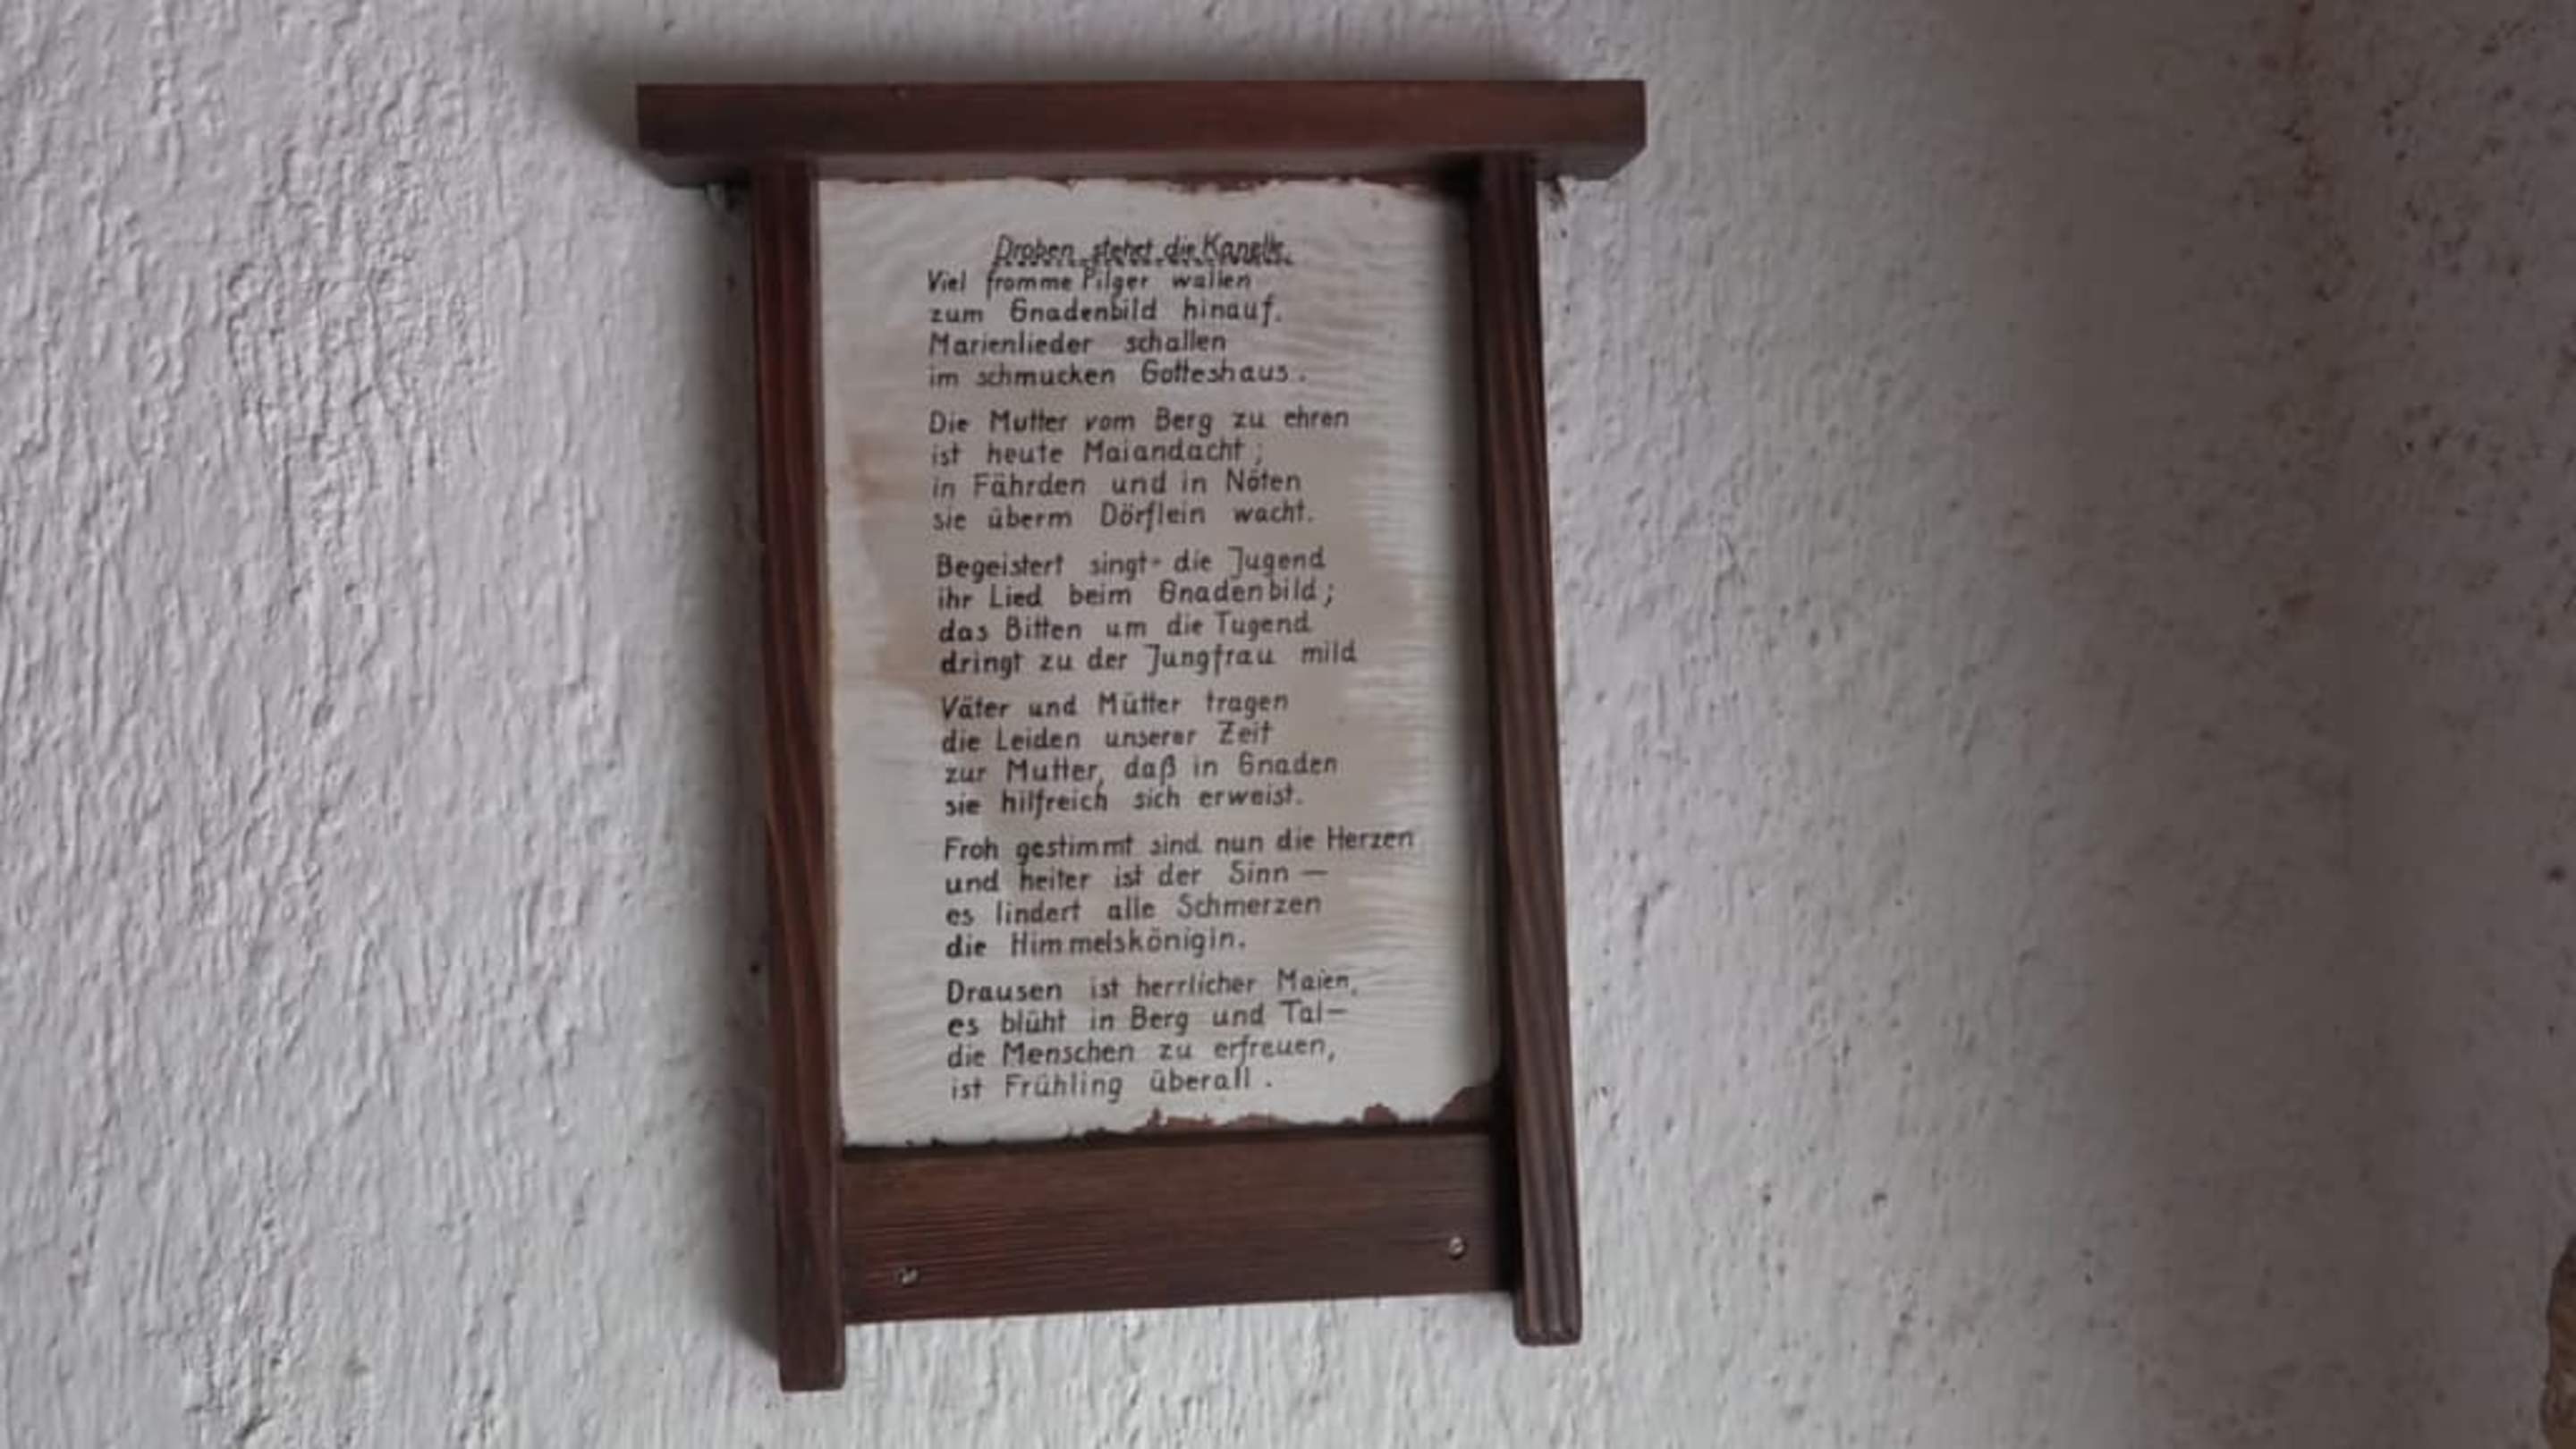 Droben stehet die Kapelle.
Viel fromme Pilger wallen
zum Gnadenbild hinauf.
Marienlieder schallen
im schmucken Gotteshaus.
Die Mutter vom Berg zu ehren
ist heute Maiandacht;
in Fährden und in Nöten
sie überm Dörflein wacht.
Begeistert singt die Jugend
ihr Lied beim Gnadenbild;
das Bitten um die Tugend
dringt zu der Jungfrau mild
Väter und Mütter tragen
die Leiden unserer Zeit
zur Mutter, daß in Gnaden
sie hilfreich sich erweist.
Froh gestimmt sind nun die Herzen
und heiter ist der Sinn —
es lindert alle Schmerzen
die Himmelskönigin.
Drausen ist herrlicher Maien,
es blüht in Berg und Tal—
die Menschen zu erfreuen,
ist Frühling überall.